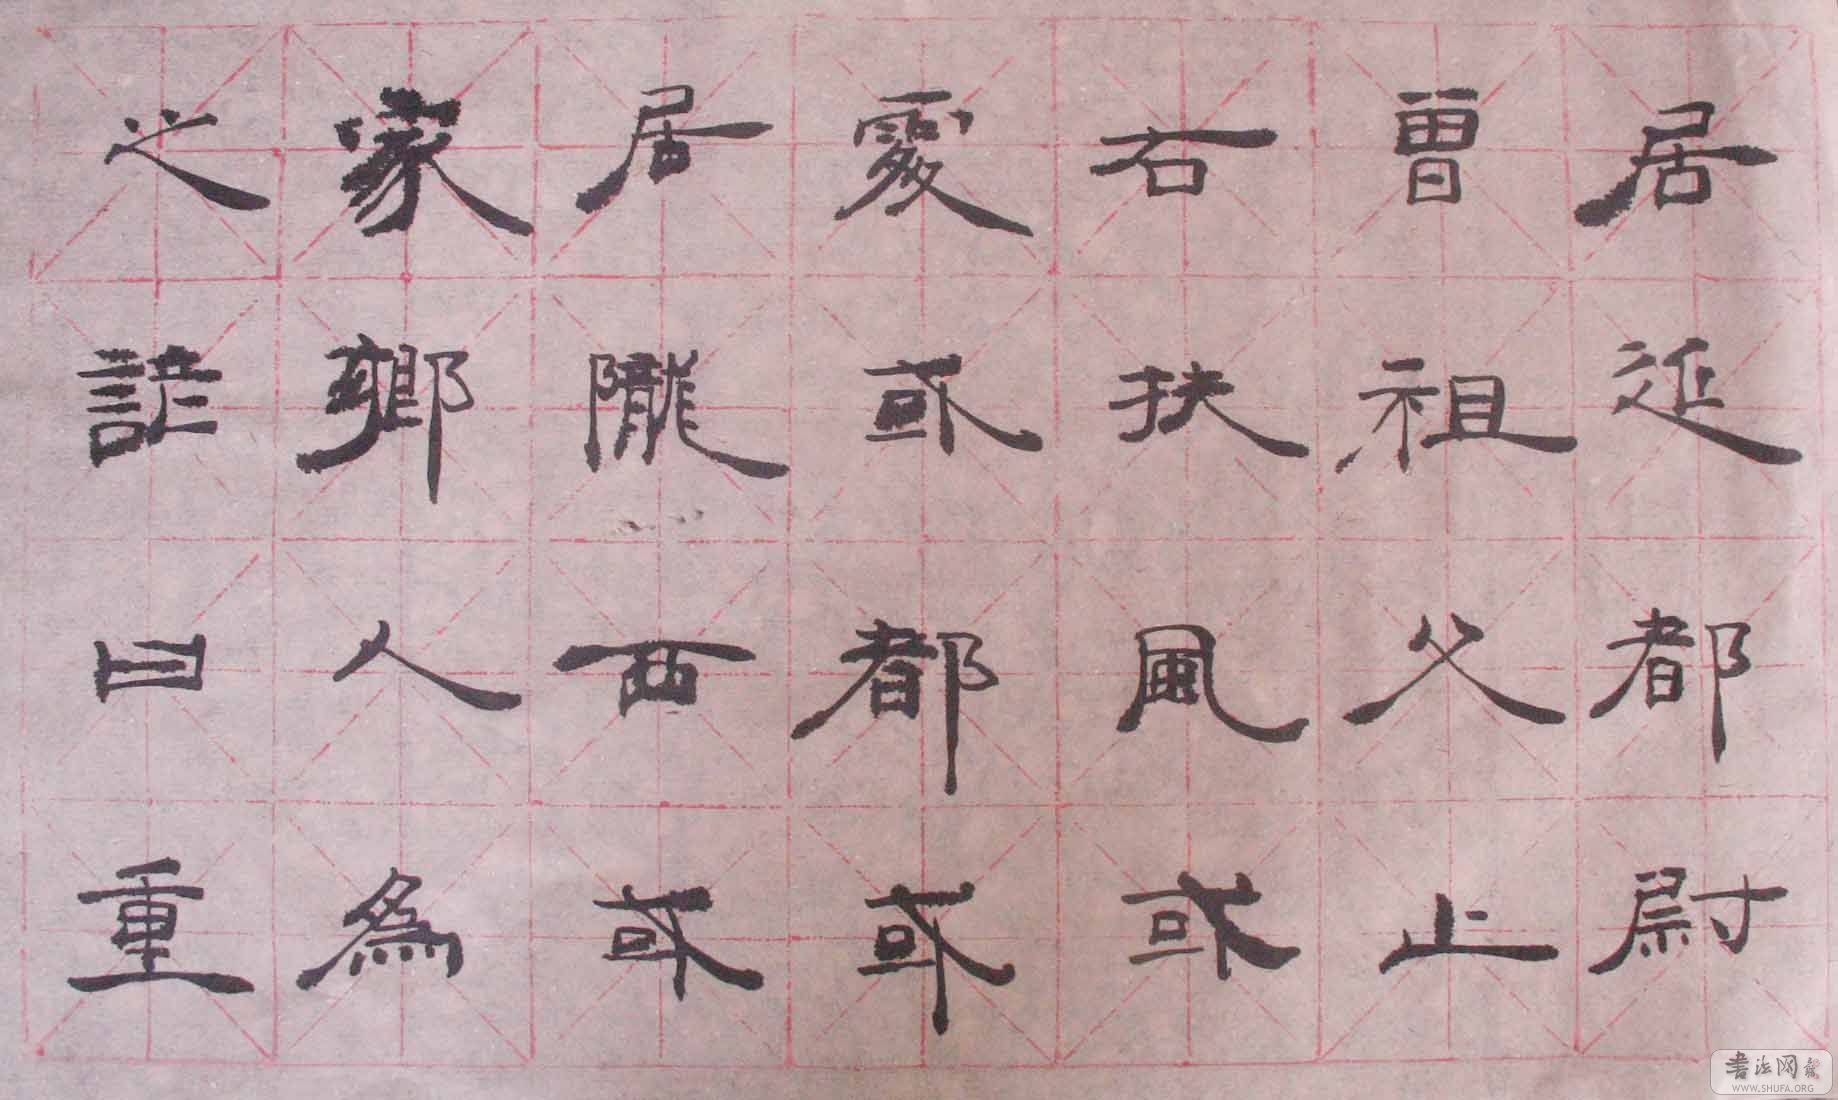 居延都尉
曾祖父止
右扶風或
處或都或
居隴西或
家鄉人為
之諺曰重
書法网
WWW.SHUFA.ORG